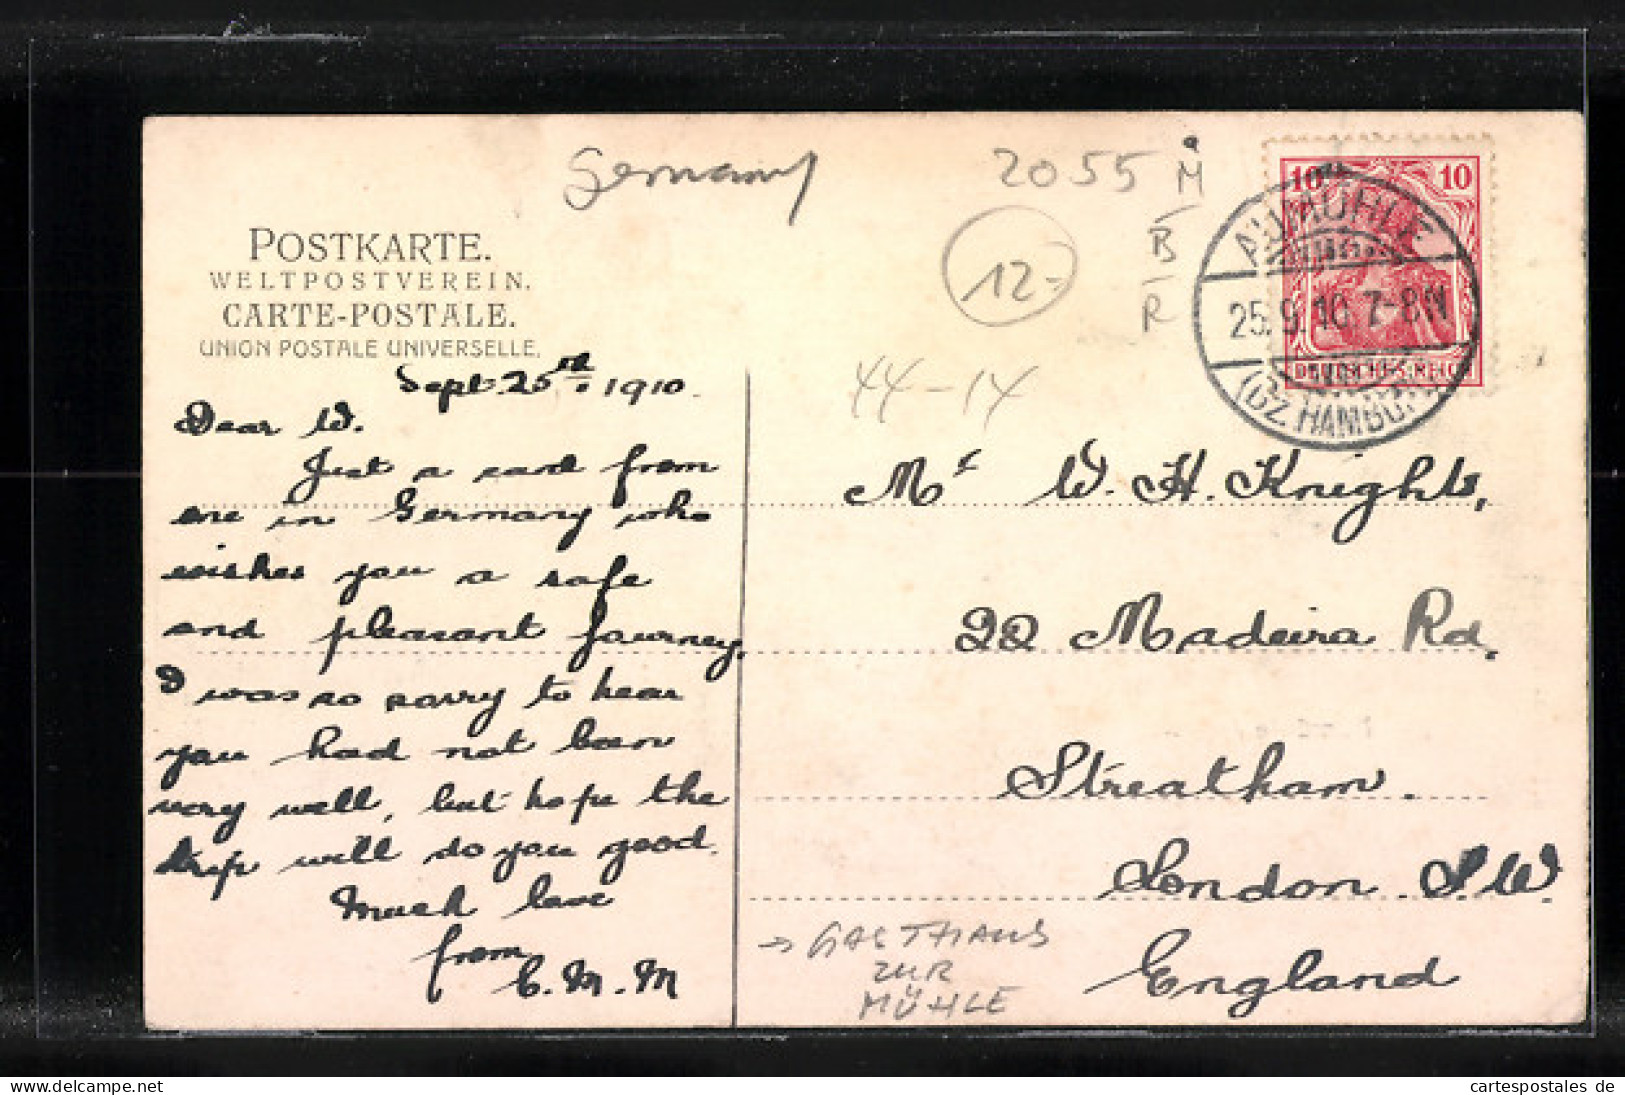 Germany
2055 M
B
R
12-
44-14
10 10
DEUTSCHES REICH
AUMÜHLE
25.9.10.7-8N
(BZ. HAMBURG)
POSTKARTE.
WELTPOSTVEREIN.
CARTE-POSTALE.
UNION POSTALE UNIVERSELLE.
Sept 25th 1910.
Dear W.
Just a card from
one in Germany who
wishes you a safe
and pleasant journey.
I was so sorry to hear
you had not been
very well, but hope the
trip will do you good.
Much love
from
C.M.M
Mr W. H. Knights,
22 Madeira Rd,
Streatham.
London. S.W.
England
→ GASTHAUS
ZUR
MÜHLE
delcampe.net
cartespostales de